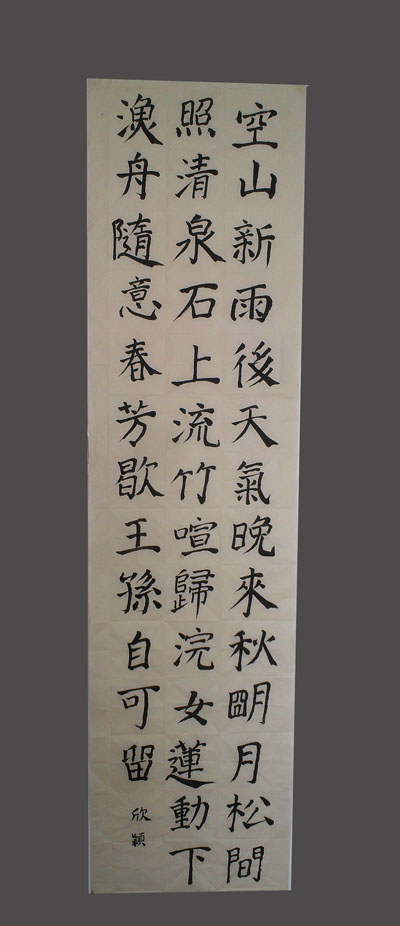 空山新雨後天氣晚來秋朙月松間
照清泉石上流竹喧歸浣女蓮動下
漁舟隨意春芳歇王孫自可留
欣穎